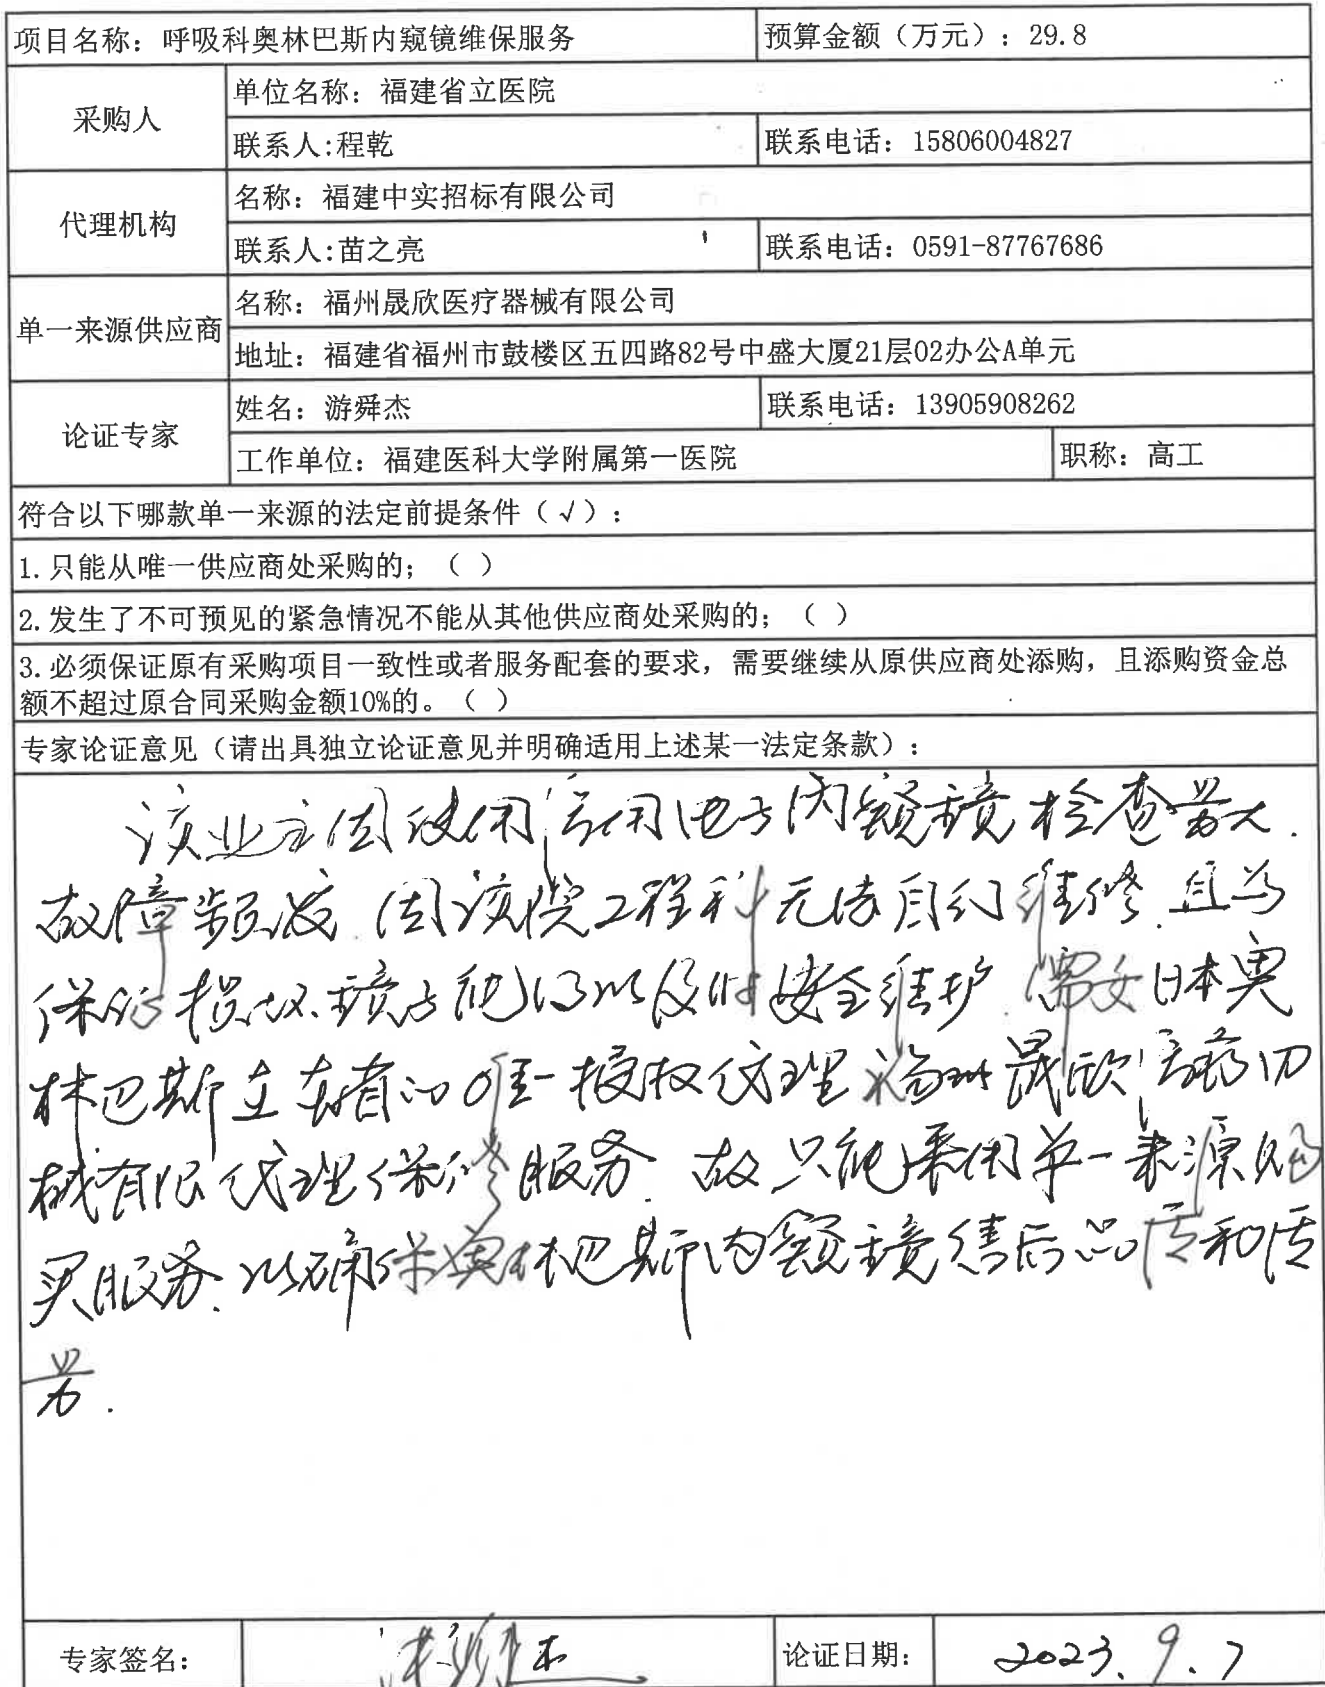 项目名称：呼吸科奥林巴斯内窥镜维保服务 预算金额（万元）：29.8
采购人
单位名称：福建省立医院
联系人:程乾 联系电话：15806004827
代理机构
名称：福建中实招标有限公司
联系人:苗之亮 联系电话：0591-87767686
单一来源供应商
名称：福州晟欣医疗器械有限公司
地址：福建省福州市鼓楼区五四路82号中盛大厦21层02办公A单元
论证专家
姓名：游舜杰 联系电话：13905908262
工作单位：福建医科大学附属第一医院 职称：高工
符合以下哪款单一来源的法定前提条件（√）：
1.只能从唯一供应商处采购的；（ ）
2.发生了不可预见的紧急情况不能从其他供应商处采购的；（ ）
3.必须保证原有采购项目一致性或者服务配套的要求，需要继续从原供应商处添购，且添购资金总
额不超过原合同采购金额10%的。（ ）
专家论证意见（请出具独立论证意见并明确适用上述某一法定条款）：
该业主因使用医用电子内窥镜检查量大.
故障频发.因该院工程科无法自行维修.且为
保证损坏镜子能得以及时安全维护.需要日本奥
林巴斯在福建的唯一授权代理福州晟欣医疗
械有限代理保修服务.故只能采用单一来源购
买服务.以确保奥林巴斯内窥镜售后品质和质
量.
专家签名： 游舜杰 论证日期： 2023.9.7